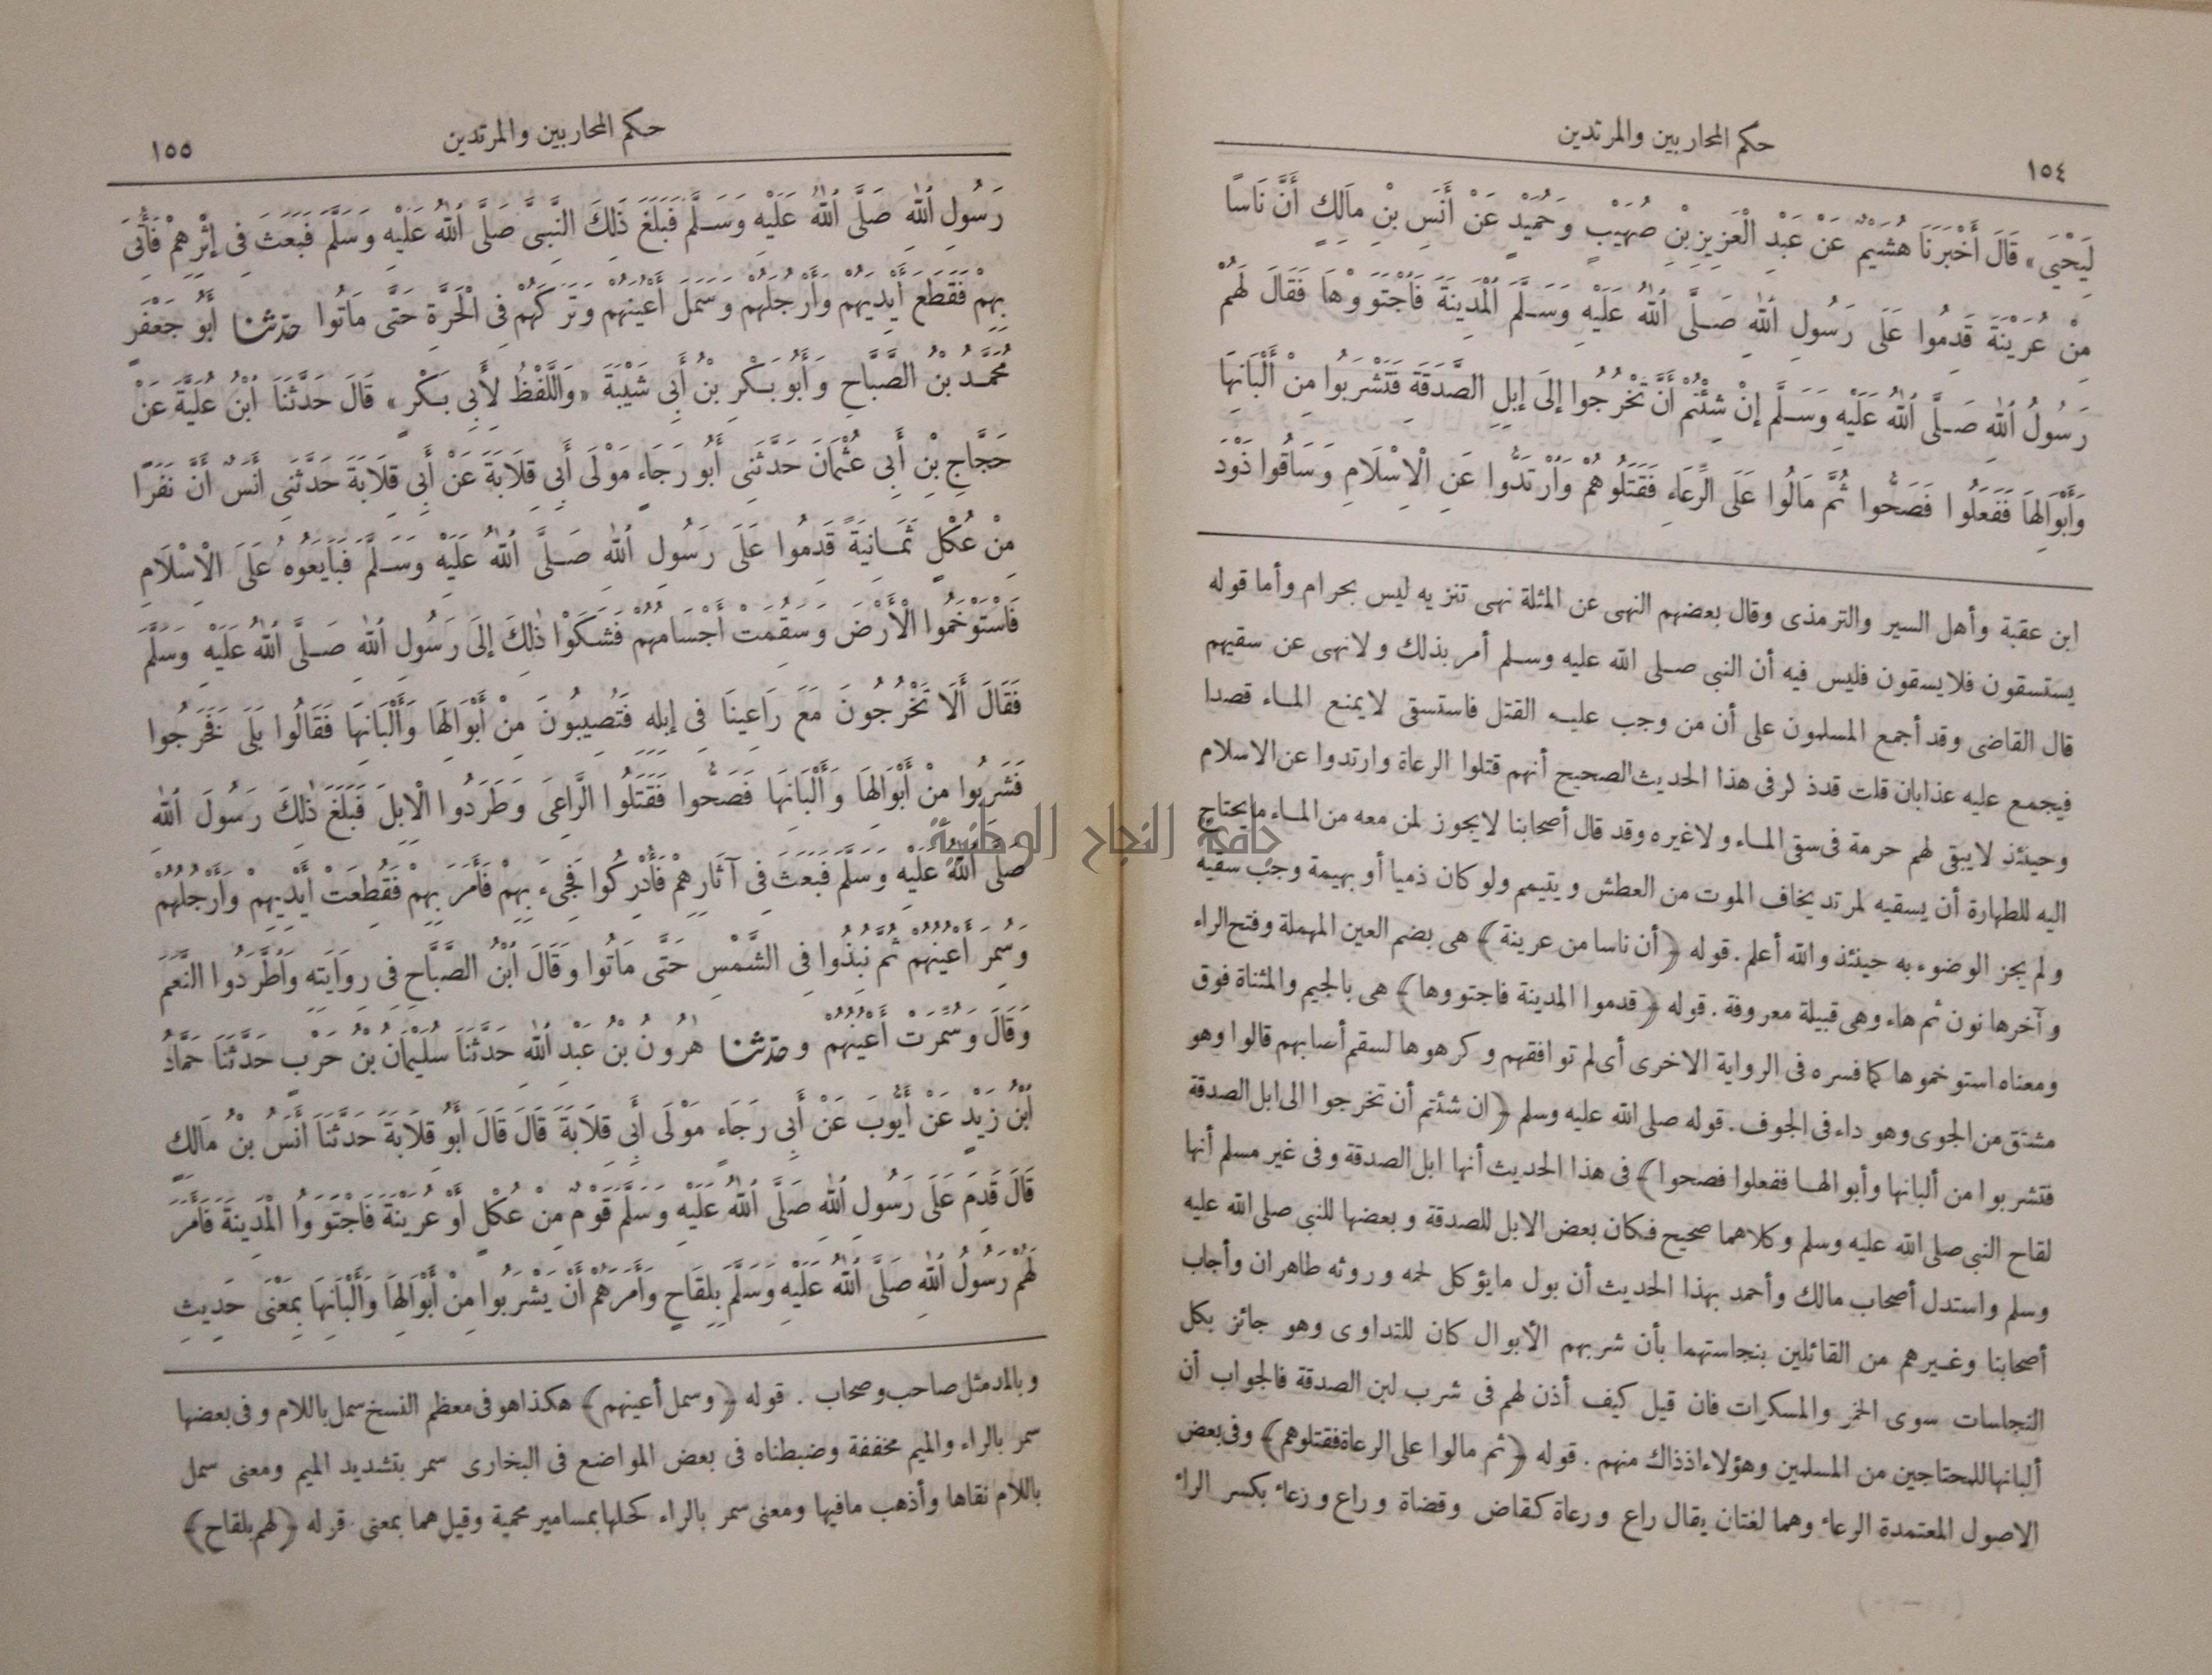 حكم المحاربين والمرتدين
١٥٤
لِيَحْيَى» قَالَ أَخْبَرَنَا هُشَيْمٌ عَنْ عَبْدِ الْعَزِيزِ بْنِ صُهَيْبٍ وَحُمَيْدٍ عَنْ أَنَسِ بْنِ مَالِكٍ أَنَّ نَاسًا
مِنْ عُرَيْنَةَ قَدِمُوا عَلَى رَسُولِ اللّٰهِ صَلَّى اللّٰهُ عَلَيْهِ وَسَلَّمَ الْمَدِينَةَ فَاجْتَوَوْهَا فَقَالَ لَهُمْ
رَسُولُ اللّٰهِ صَلَّى اللّٰهُ عَلَيْهِ وَسَلَّمَ إِنْ شِئْتُمْ أَنْ تَخْرُجُوا إِلَى إِبِلِ الصَّدَقَةِ فَتَشْرَبُوا مِنْ أَلْبَانِهَا
وَأَبْوَالِهَا فَفَعَلُوا فَصَحُّوا ثُمَّ مَالُوا عَلَى الرِّعَاءِ فَقَتَلُوهُمْ وَارْتَدُّوا عَنِ الْإِسْلَامِ وَسَاقُوا ذَوْدَ
ابن عقبة وأهل السير والترمذى وقال بعضهم النهى عن المثلة نهى تنزيه ليس بحرام وأما قوله
يستسقون فلا يسقون فليس فيه أن النبى صلى الله عليه وسلم أمر بذلك ولا نهى عن سقيهم
قال القاضى وقد أجمع المسلمون على أن من وجب عليه القتل فاستسقى لا يمنع الماء قصدا
فيجمع عليه عذابان قلت قد ذكر فى هذا الحديث الصحيح أنهم قتلوا الرعاة وارتدوا عن الاسلام
وحينئذ لا يبقى لهم حرمة فى سقى الماء ولا غيره وقد قال أصحابنا لا يجوز لمن معه من الماء ما يحتاج
اليه للطهارة أن يسقيه لمرتد يخاف الموت من العطش ويتيمم ولو كان ذميا أو بهيمة وجب سقيه
ولم يجز الوضوء به حينئذ والله أعلم. قوله ﴿أن ناسا من عرينة﴾ هى بضم العين المهملة وفتح الراء
وآخرها نون ثم هاء وهى قبيلة معروفة. قوله ﴿قدموا المدينة فاجتووها﴾ هى بالجيم والمثناة فوق
ومعناه استوخموها كما فسره فى الرواية الاخرى أى لم توافقهم وكرهوها لسقم أصابهم قالوا وهو
مشتق من الجوى وهو داء فى الجوف. قوله صلى الله عليه وسلم ﴿ان شئتم أن تخرجوا الى ابل الصدقة
فتشربوا من ألبانها وأبوالها ففعلوا فصحوا﴾ فى هذا الحديث أنها ابل الصدقة وفى غير مسلم أنها
لقاح النبى صلى الله عليه وسلم وكلاهما صحيح فكان بعض الابل للصدقة وبعضها للنبى صلى الله عليه
وسلم واستدل أصحاب مالك وأحمد بهذا الحديث أن بول ما يؤكل لحمه وروثه طاهران وأجاب
أصحابنا وغيرهم من القائلين بنجاستهما بأن شربهم الأبوال كان للتداوى وهو جائز بكل
النجاسات سوى الخمر والمسكرات فان قيل كيف أذن لهم فى شرب لبن الصدقة فالجواب أن
ألبانها للمحتاجين من المسلمين وهؤلاء اذ ذاك منهم. قوله ﴿ثم مالوا على الرعاة فقتلوهم﴾ وفى بعض
الاصول المعتمدة الرعاء وهما لغتان يقال راع ورعاة كقاض وقضاة وراع ورعاء بكسر الراء
حكم المحاربين والمرتدين
١٥٥
رَسُولِ اللّٰهِ صَلَّى اللّٰهُ عَلَيْهِ وَسَلَّمَ فَبَلَغَ ذٰلِكَ النَّبِيَّ صَلَّى اللّٰهُ عَلَيْهِ وَسَلَّمَ فَبَعَثَ فِى إِثْرِهِمْ فَأُتِىَ
بِهِمْ فَقَطَعَ أَيْدِيَهُمْ وَأَرْجُلَهُمْ وَسَمَلَ أَعْيُنَهُمْ وَتَرَكَهُمْ فِى الْحَرَّةِ حَتَّى مَاتُوا حدثنا أَبُو جَعْفَرٍ
مُحَمَّدُ بْنُ الصَّبَّاحِ وَأَبُو بَكْرِ بْنُ أَبِى شَيْبَةَ «وَاللَّفْظُ لِأَبِى بَكْرٍ» قَالَ حَدَّثَنَا ابْنُ عُلَيَّةَ عَنْ
حَجَّاجِ بْنِ أَبِى عُثْمَانَ حَدَّثَنِى أَبُو رَجَاءٍ مَوْلَى أَبِى قِلَابَةَ عَنْ أَبِى قِلَابَةَ حَدَّثَنِى أَنَسٌ أَنَّ نَفَرًا
مِنْ عُكْلٍ ثَمَانِيَةً قَدِمُوا عَلَى رَسُولِ اللّٰهِ صَلَّى اللّٰهُ عَلَيْهِ وَسَلَّمَ فَبَايَعُوهُ عَلَى الْإِسْلَامِ
فَاسْتَوْخَمُوا الْأَرْضَ وَسَقُمَتْ أَجْسَامُهُمْ فَشَكَوْا ذٰلِكَ إِلَى رَسُولِ اللّٰهِ صَلَّى اللّٰهُ عَلَيْهِ وَسَلَّمَ
فَقَالَ أَلَا تَخْرُجُونَ مَعَ رَاعِينَا فِى إِبِلِهِ فَتُصِيبُونَ مِنْ أَبْوَالِهَا وَأَلْبَانِهَا فَقَالُوا بَلَى فَخَرَجُوا
فَشَرِبُوا مِنْ أَبْوَالِهَا وَأَلْبَانِهَا فَصَحُّوا فَقَتَلُوا الرَّاعِىَ وَطَرَدُوا الْإِبِلَ فَبَلَغَ ذٰلِكَ رَسُولَ اللّٰهِ
صَلَّى اللّٰهُ عَلَيْهِ وَسَلَّمَ فَبَعَثَ فِى آثَارِهِمْ فَأُدْرِكُوا فَجِىءَ بِهِمْ فَأَمَرَ بِهِمْ فَقُطِعَتْ أَيْدِيهِمْ وَأَرْجُلُهُمْ
وَسُمِرَ أَعْيُنُهُمْ ثُمَّ نُبِذُوا فِى الشَّمْسِ حَتَّى مَاتُوا وَقَالَ ابْنُ الصَّبَّاحِ فِى رِوَايَتِهِ وَاطَّرَدُوا النَّعَمَ
وَقَالَ وَسُمِّرَتْ أَعْيُنُهُمْ وحدثنا هٰرُونُ بْنُ عَبْدِ اللّٰهِ حَدَّثَنَا سُلَيْمَانُ بْنُ حَرْبٍ حَدَّثَنَا حَمَّادُ
ابْنُ زَيْدٍ عَنْ أَيُّوبَ عَنْ أَبِى رَجَاءٍ مَوْلَى أَبِى قِلَابَةَ قَالَ قَالَ أَبُو قِلَابَةَ حَدَّثَنَا أَنَسُ بْنُ مَالِكٍ
قَالَ قَدِمَ عَلَى رَسُولِ اللّٰهِ صَلَّى اللّٰهُ عَلَيْهِ وَسَلَّمَ قَوْمٌ مِنْ عُكْلٍ أَوْ عُرَيْنَةَ فَاجْتَوَوُا الْمَدِينَةَ فَأَمَرَ
لَهُمْ رَسُولُ اللّٰهِ صَلَّى اللّٰهُ عَلَيْهِ وَسَلَّمَ بِلِقَاحٍ وَأَمَرَهُمْ أَنْ يَشْرَبُوا مِنْ أَبْوَالِهَا وَأَلْبَانِهَا بِمَعْنَى حَدِيثِ
وبالمد مثل صاحب وصحاب. قوله ﴿وسمل أعينهم﴾ هكذا هو فى معظم النسخ سمل باللام وفى بعضها
سمر بالراء والميم مخففة وضبطناه فى بعض المواضع فى البخارى سمر بتشديد الميم ومعنى سمل
باللام نقاها وأذهب ما فيها ومعنى سمر بالراء كحلها بمسامير محمية وقيل هما بمعنى. قوله ﴿لهم بلقاح﴾
جامعة النجاح الوطنية